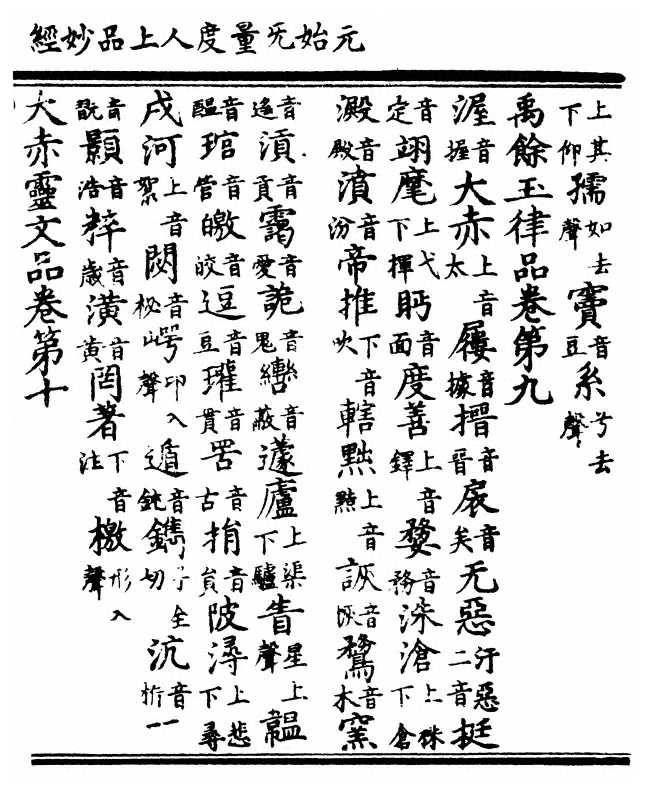 元始无量度人上品妙經
上其下仰孺如去聲竇音豆系兮去聲
禹餘玉律品卷第九
渥音握大赤上音太屨音據搢音晉扆音矣无惡二音汙惡挺
音定翊麾上弋下揮眄音面度善上音鐸婺音務洙滄上硃下倉
澱音殿濆音汾帝推下音吹轄黕上音詼音恢鶩音木窯
音遙音貢靄音愛詭音鬼音蔽蘧廬上渠下驢眚星上聲韞
音醖琯音管皦音皎逗音豆瓘音貫罟音古捐音貟陂潯上悲下尋
河上音閟音祕咢入聲遁音鈍鐫子全切沆音
音翫顥音浩粹音歲潢音黃罔著下音注檄形入聲
大赤靈文品卷第十